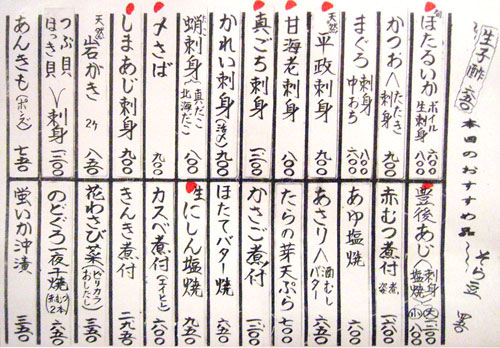 生子酢 六五〇
本日のおすすめ品
そら豆
ほたるいか ボイル 六〇〇
生刺身 八〇〇
かつお たたき
刺身 九〇〇
まぐろ 刺身 八〇〇
中おち 六〇〇
天然 平政刺身 九〇〇
甘海老刺身 八〇〇
真ごち刺身
かれい刺身 九〇〇
蛸刺身 真だこ
北海だこ 八〇〇
〆さば 九〇〇
しまあじ刺身 九〇〇
天然 岩がき 2ケ 八五〇
つぶ貝
ほっき貝 刺身
あんきも(ポンズ) 七五〇
豊後あじ 刺身
塩焼
赤むつ煮付
あゆ塩焼 六〇〇
あさり 酒むし
バター 六五〇
たらの芽天ぷら 七〇〇
かさご煮付
ほたてバター焼 六五〇
生にしん塩焼 九五〇
カスベ煮付(エイヒレ) 六〇〇
きんき煮付 二九五〇
花わさび菜(ピリカラ おしたし) 三五〇
のどぐろ一夜干焼 六五〇
蛍いか沖漬 三五〇